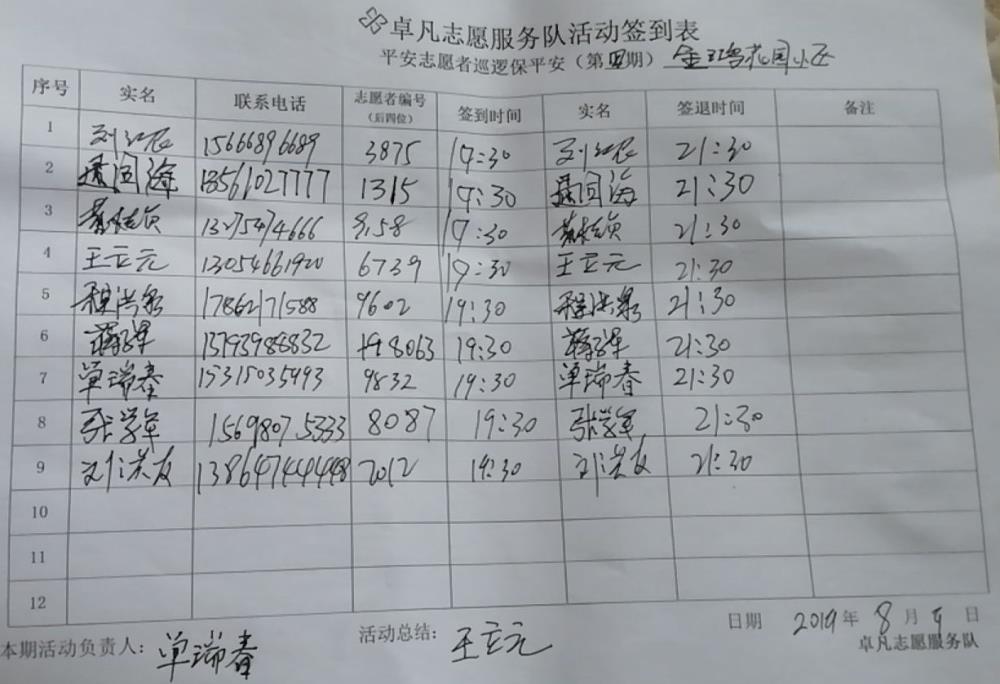 卓凡志愿服务队活动签到表
平安志愿者巡逻保平安（第四期）金玛花园小区
序号 实名 联系电话 志愿者编号（后四位） 签到时间 实名 签退时间 备注
1 刘红民 15666896689 3875 19:30 刘红民 21:30
2 聂国海 18561027777 1315 19:30 聂国海 21:30
3 13275474666 19:30 21:30
4 王立元 13054661920 6739 19:30 王立元 21:30
5 程洪泉 17862171588 9602 19:30 程洪泉 21:30
6 13793988832 8063 19:30 21:30
7 单瑞春 15315035993 9832 19:30 单瑞春 21:30
8 张学军 15698075333 8087 19:30 张学军 21:30
9 刘洪友 2012 19:30 刘洪友 21:30
10
11
12
日期 2019年8月9日
本期活动负责人：单瑞春 活动总结：王立元 卓凡志愿服务队